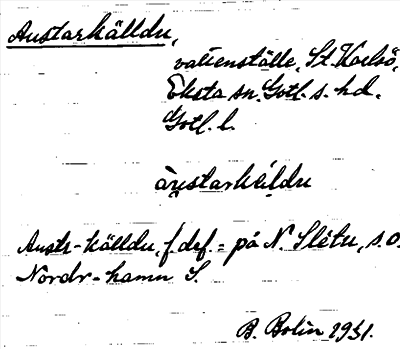 Austarkälldu,
vattenställe, St. Karlsö,
Eksta sn. Gotl. s. hd.
Gotl. l.
àustarkéldu
Austr-källdu, f. drf. = på N. Slétu, s.o.
Nordr-hamn S.
B. Bolin 1931.